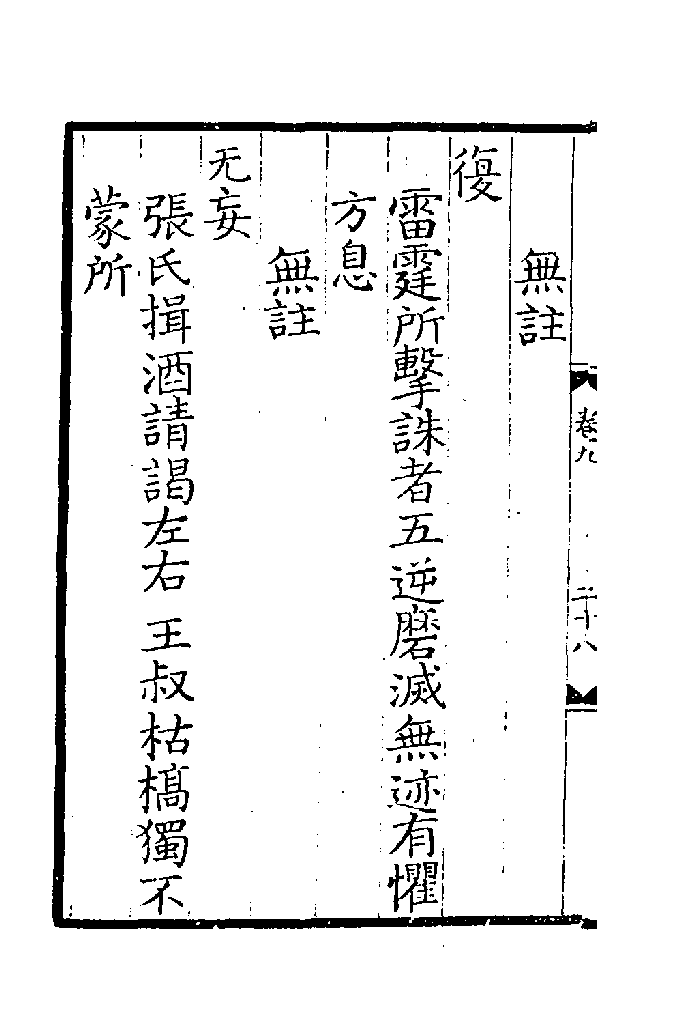 卷九
二十八
無註
復
雷霆所擊誅者五逆磨滅無迹有懼
方息
無註
无妄
張氏揖酒請謁左右王叔枯槁獨不
蒙所